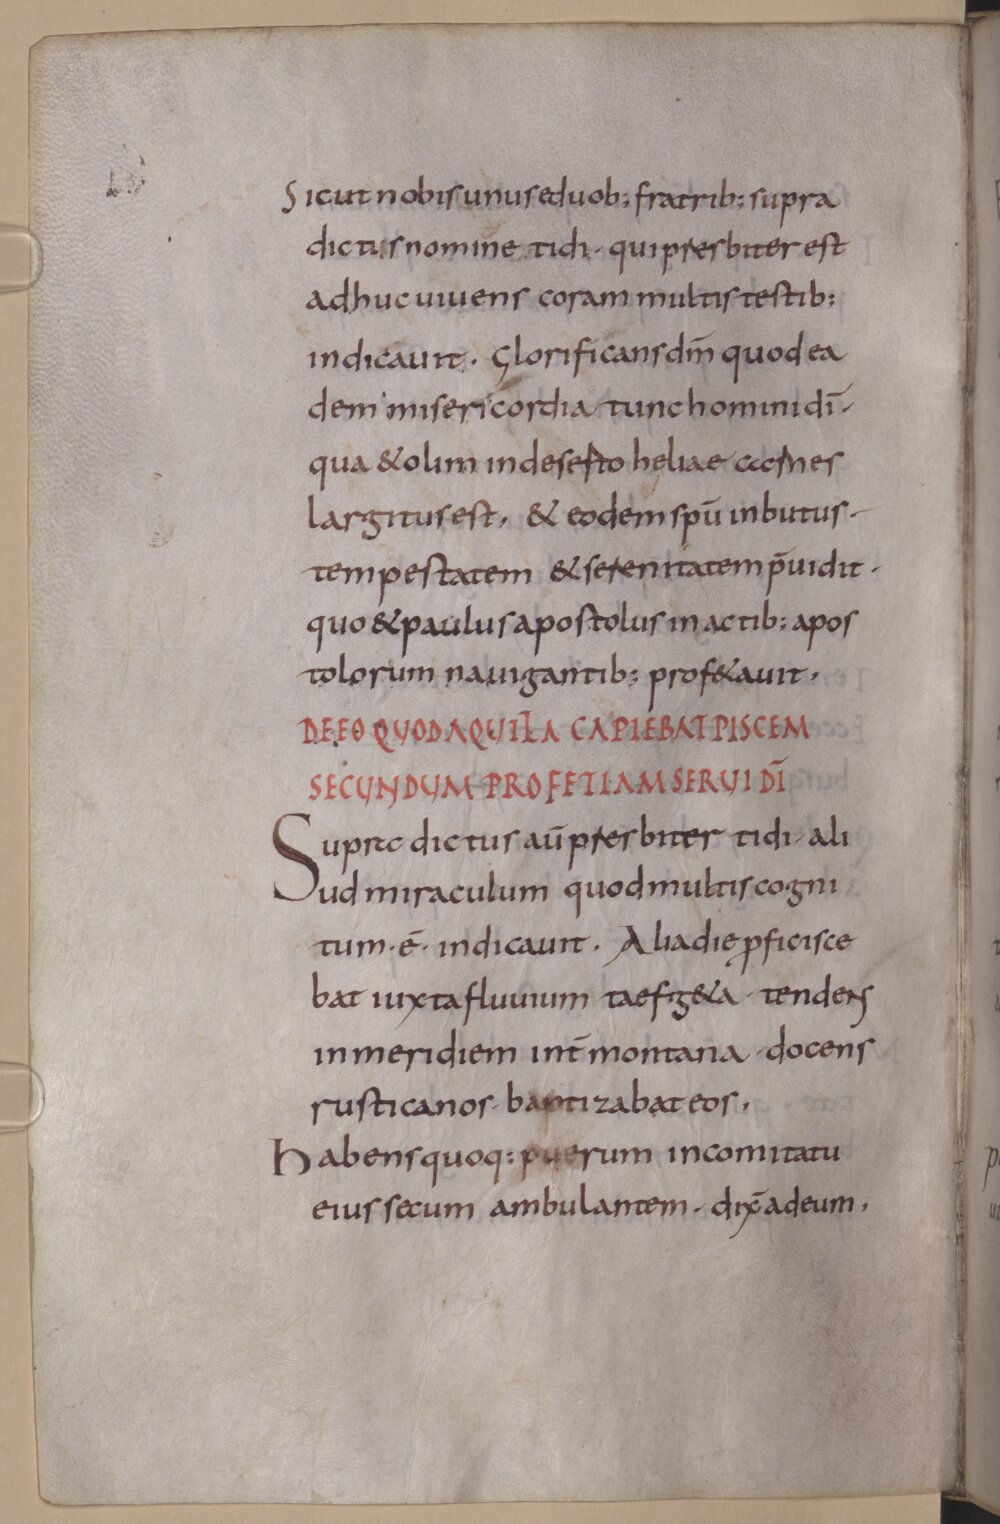 Sicut nobis unus e duob; fratrib; supra
dictus nomine tidi · qui presbiter est
adhuc uiuens coram multis testib;
indicauit · Glorificans dm̄ quod ea
dem misericordia tunc homini dī ·
qua & olim in deserto heliae
largitus est, & eodem spū inbutus ·
tempestatem & serenitatem p̄uidit ·
quo & paulus apostolus in actib; apos
tolorum nauigantib; prof&auit ·
DE EO QUOD AQUILA CAPIEBAT PISCEM
SECUNDUM PROFETIAM SERUI DĪ
Supra dictus aū presbiter tidi · ali
ud miraculum quod multis cogni
tum · ē · indicauit · Alia die ꝓficisce
bat iuxta fluuium taefg&a · tendens
in meridiem int̄ montana · docens
rusticanos · baptizabat eos,
Habens quoq; puerum in comitatu
eius secum ambulantem · dix̄ ad eum,